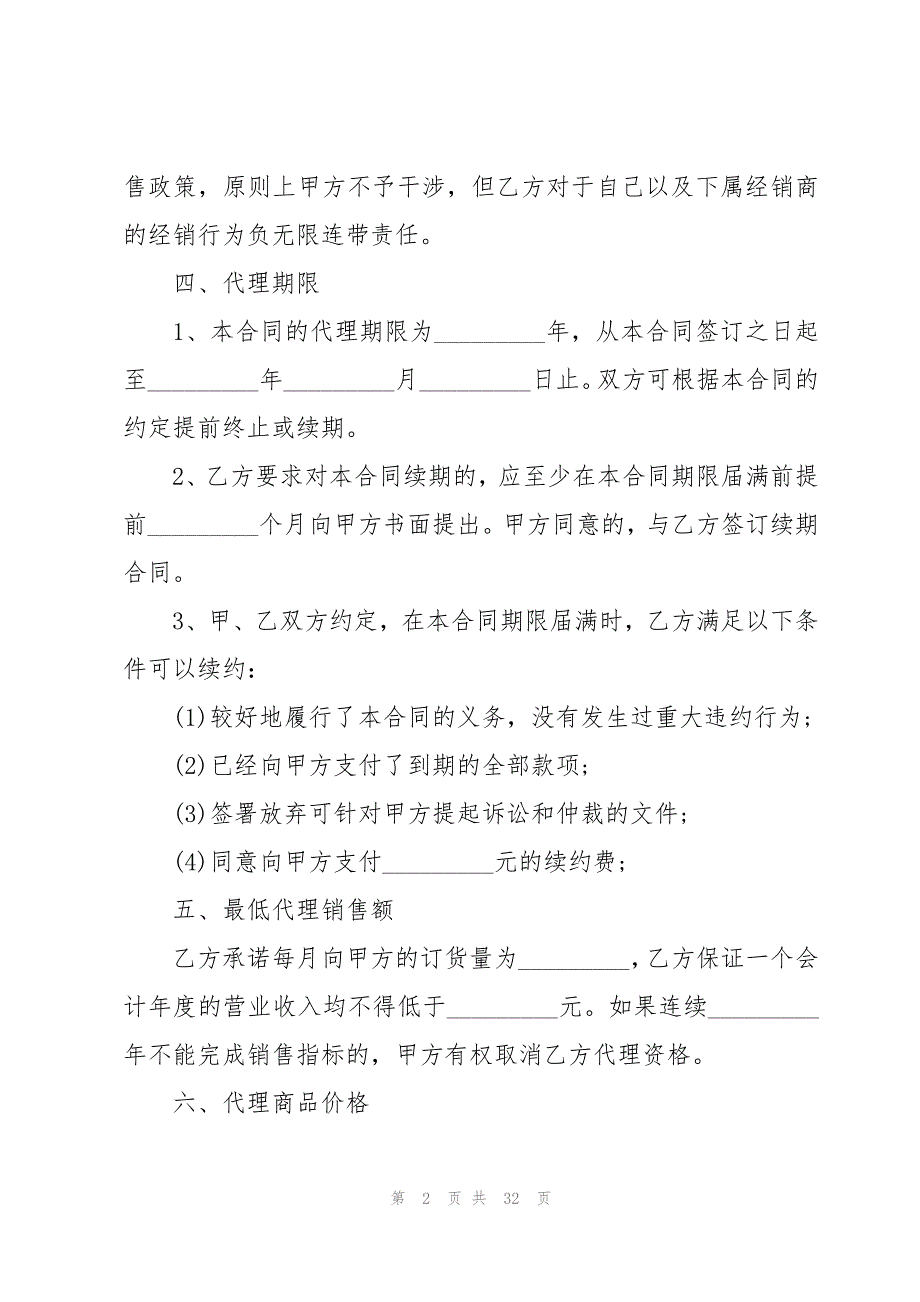 售政策，原则上甲方不予干涉，但乙方对于自己以及下属经销商
的经销行为负无限连带责任。
四、代理期限
1、本合同的代理期限为_________年，从本合同签订之日起
至_________年_________月_________日止。双方可根据本合同的
约定提前终止或续期。
2、乙方要求对本合同续期的，应至少在本合同期限届满前提
前_________个月向甲方书面提出。甲方同意的，与乙方签订续期
合同。
3、甲、乙双方约定，在本合同期限届满时，乙方满足以下条
件可以续约：
(1)较好地履行了本合同的义务，没有发生过重大违约行为;
(2)已经向甲方支付了到期的全部款项;
(3)签署放弃可针对甲方提起诉讼和仲裁的文件;
(4)同意向甲方支付_________元的续约费;
五、最低代理销售额
乙方承诺每月向甲方的订货量为_________，乙方保证一个会
计年度的营业收入均不得低于_________元。如果连续_________
年不能完成销售指标的，甲方有权取消乙方代理资格。
六、代理商品价格
第 2 页 共 32 页